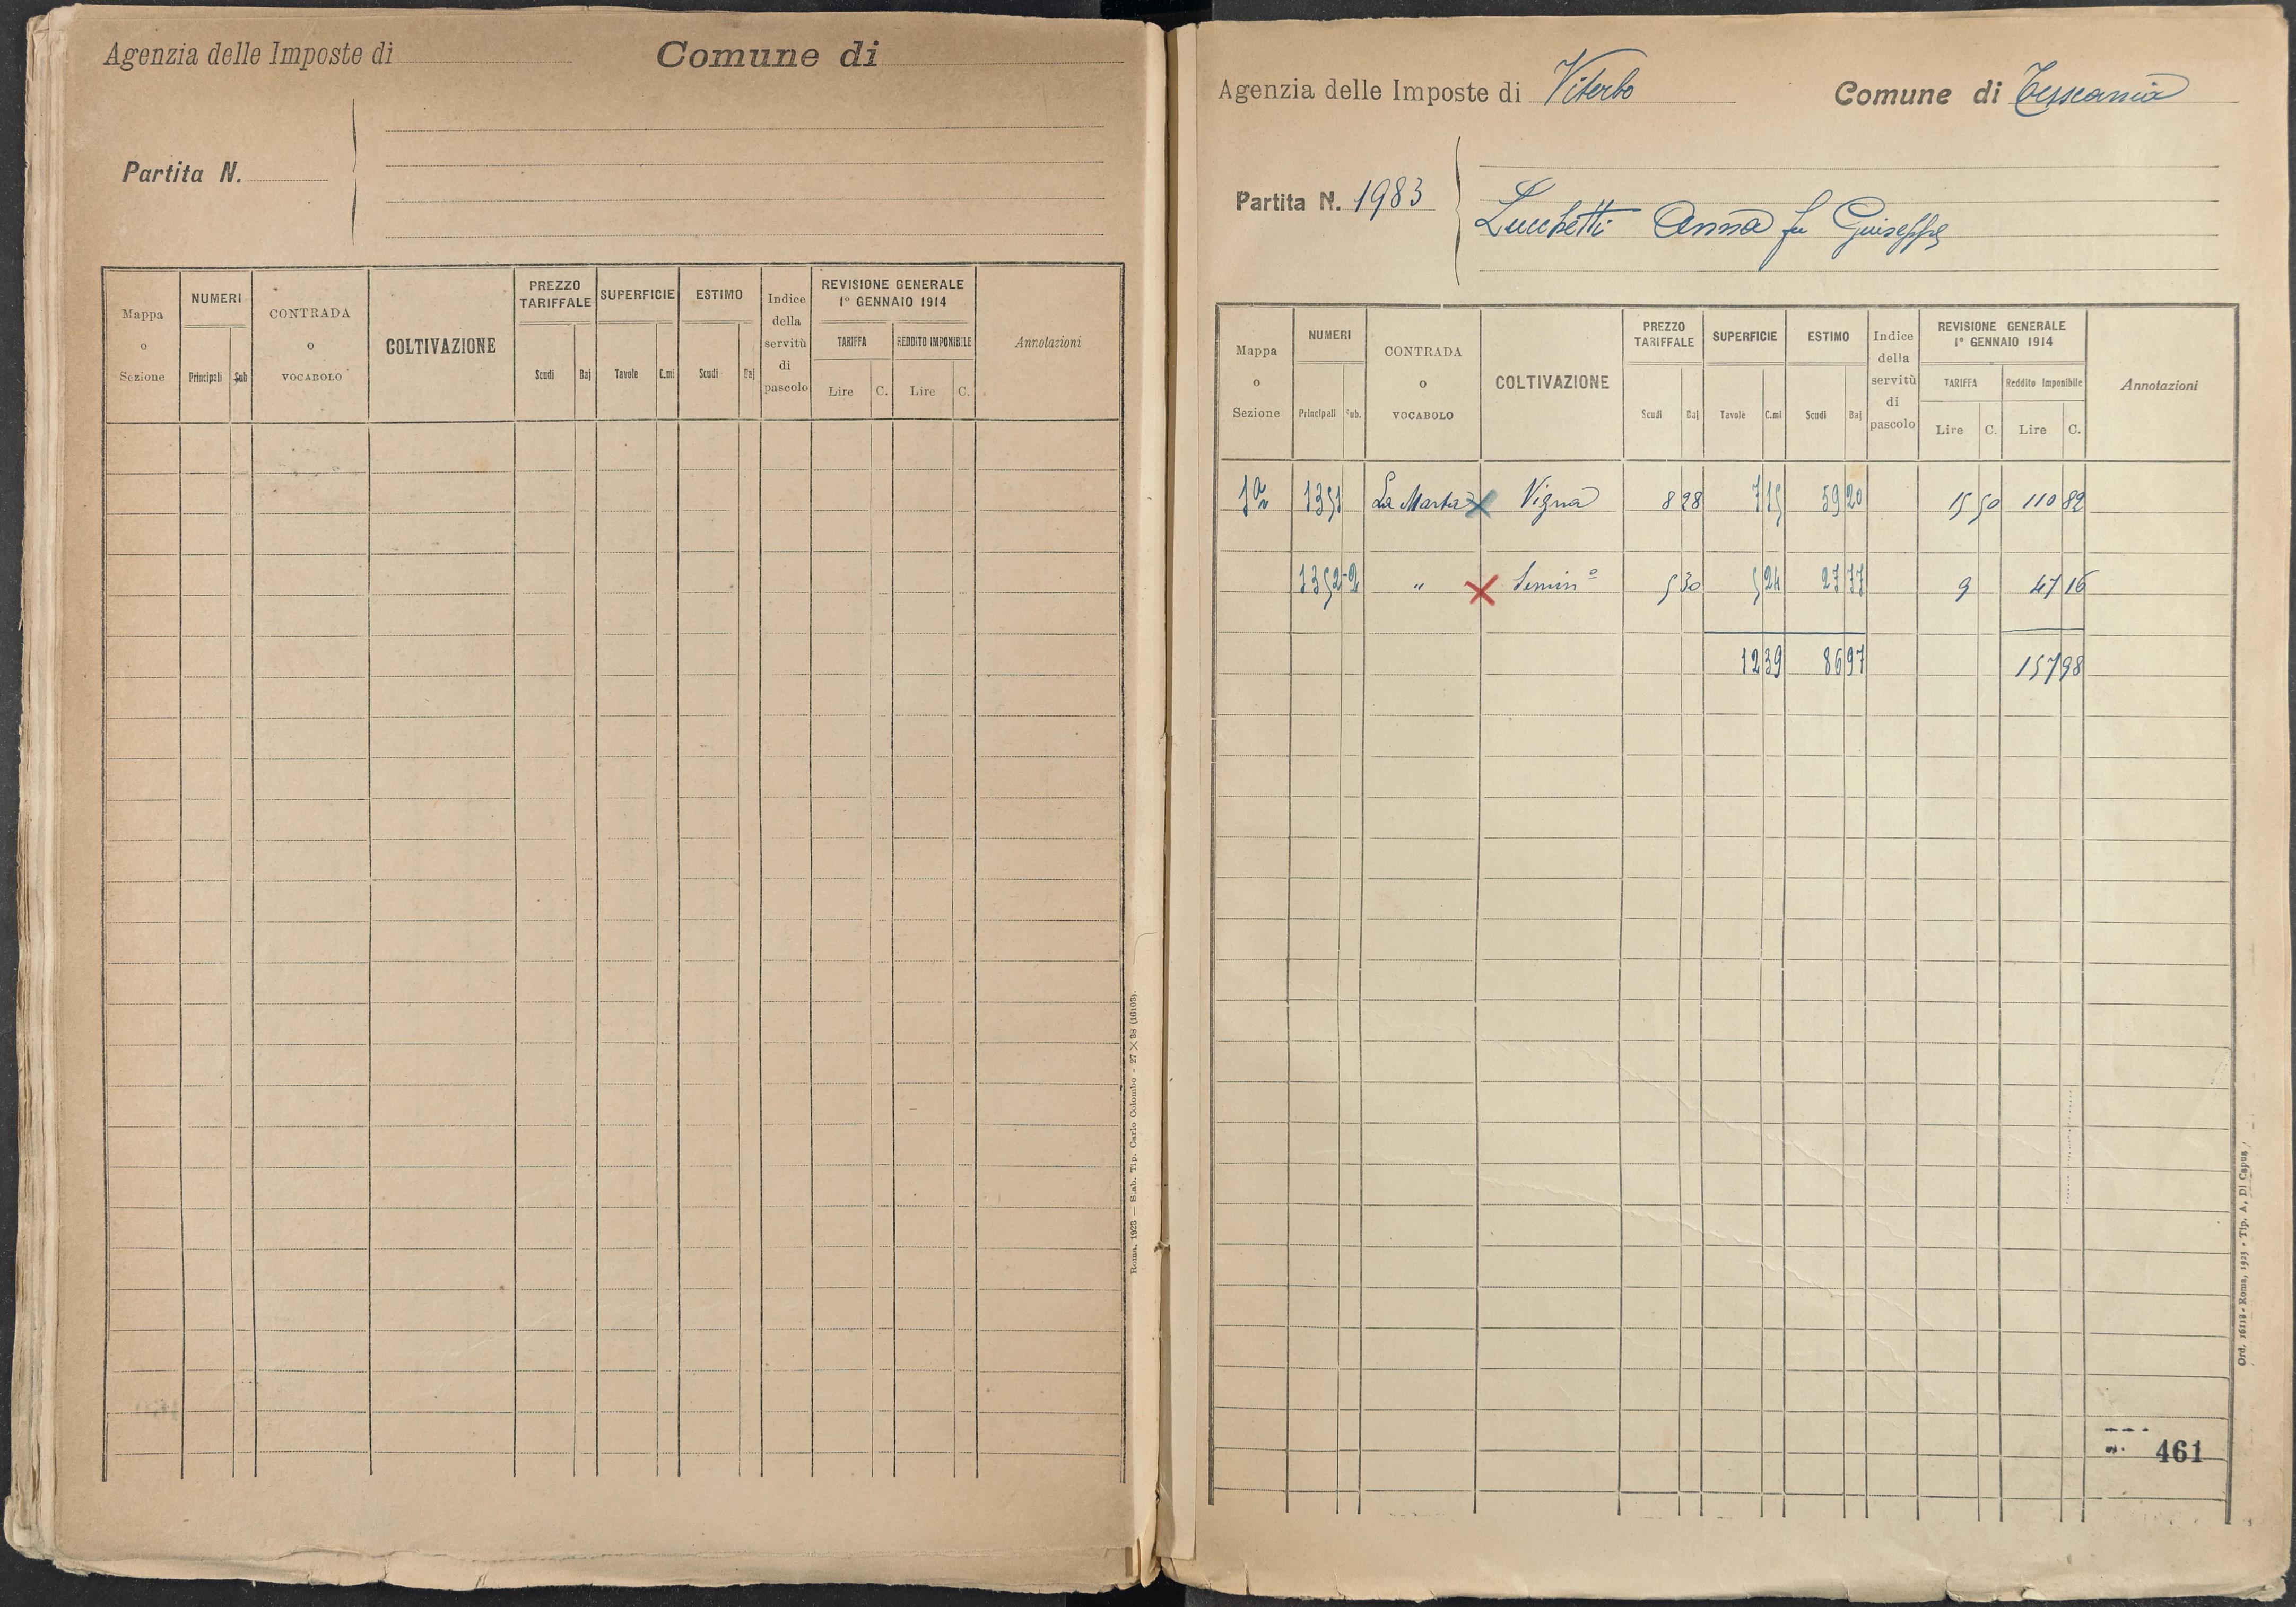 Agenzia delle Imposte di Comune di
Partita N.
Mappa o Sezione NUMERI Principali Sub CONTRADA o VOCABOLO COLTIVAZIONE PREZZO TARIFFALE Scudi Baj SUPERFICIE Tavole C.mi ESTIMO Scudi Baj Indice della servitù di pascolo REVISIONE GENERALE 1° GENNAIO 1914 TARIFFA Lire C. REDDITO IMPONIBILE Lire C. Annotazioni
Roma, 1923 — Stab. Tip. Carlo Colombo - 27 × 38 (16103).
Agenzia delle Imposte di Viterbo Comune di Tuscania
Partita N. 1983
Lucchetti Anna fu Giuseppe
Mappa o Sezione NUMERI Principali Sub. CONTRADA o VOCABOLO COLTIVAZIONE PREZZO TARIFFALE Scudi Baj SUPERFICIE Tavole C.mi ESTIMO Scudi Baj Indice della servitù di pascolo REVISIONE GENERALE 1° GENNAIO 1914 TARIFFA Lire C. Reddito Imponibile Lire C. Annotazioni
1a 1351 La Marta Vigna 8 28 7 15 59 20 15 50 110 82
1352 2 " Semin° 5 30 5 24 27 77 9 47 16
12 39 86 97 157 98
461
Ord. 16118 - Roma, 1925 - Tip. A. Di Capua